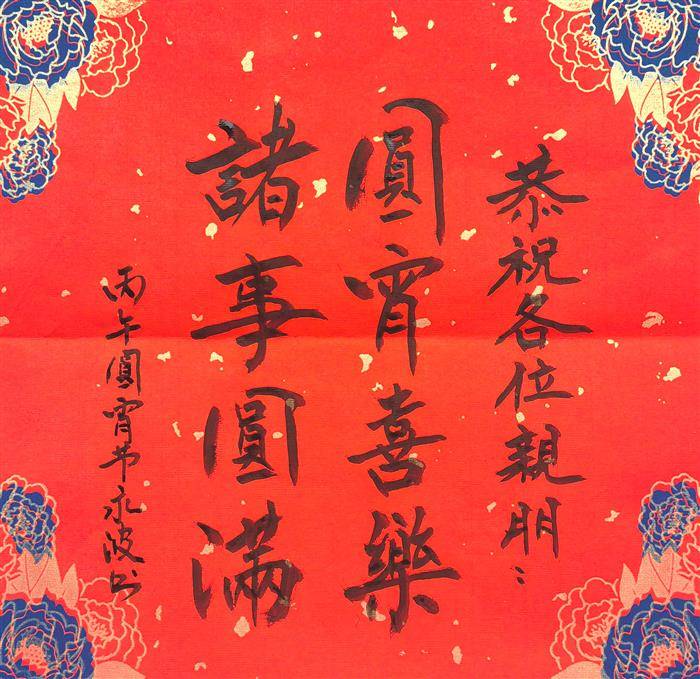 恭祝各位親朋：
圓宵喜樂
諸事圓滿
丙午圓宵节永波书